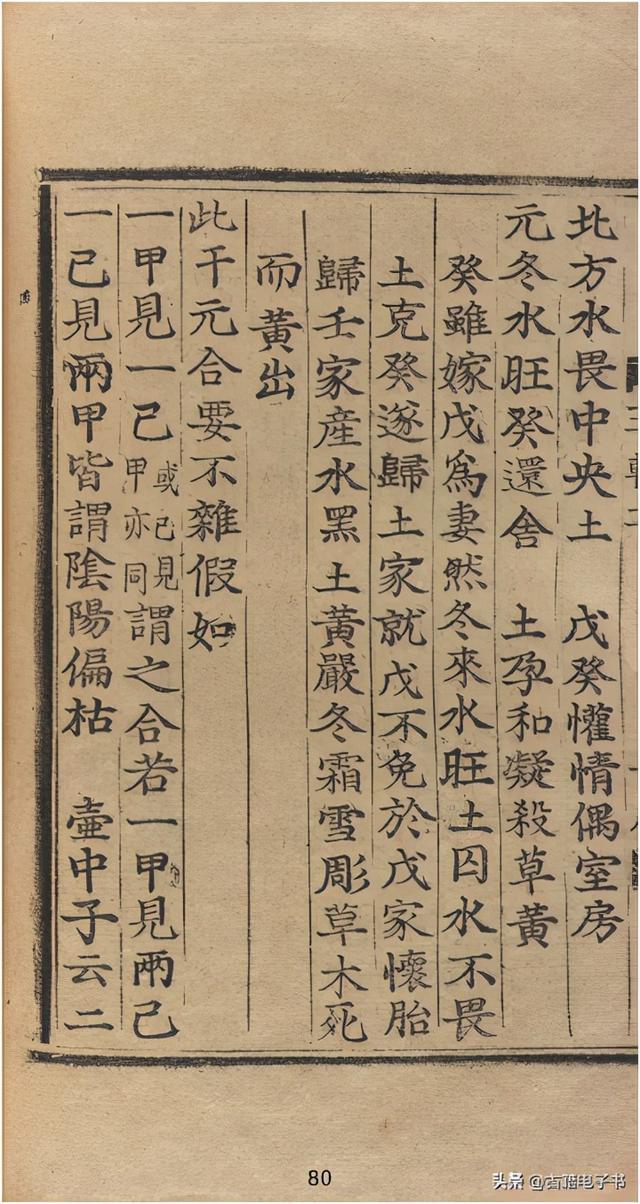 北方水畏中央土　戊癸懽情偶室房
元冬水旺癸還舍　土孕和凝殺草黃
癸雖嫁戊爲妻然冬來水旺土囚水不畏
土克癸遂歸土家就戊不免於戊家懷胎
歸壬家產水黑土黃嚴冬霜雪彫草木死
而黃出
此干元合要不雜假如
一甲見一己或己見甲亦同謂之合若一甲見兩己
一己見兩甲皆謂陰陽偏枯　壷中子云二
80
头条@古籍电子书